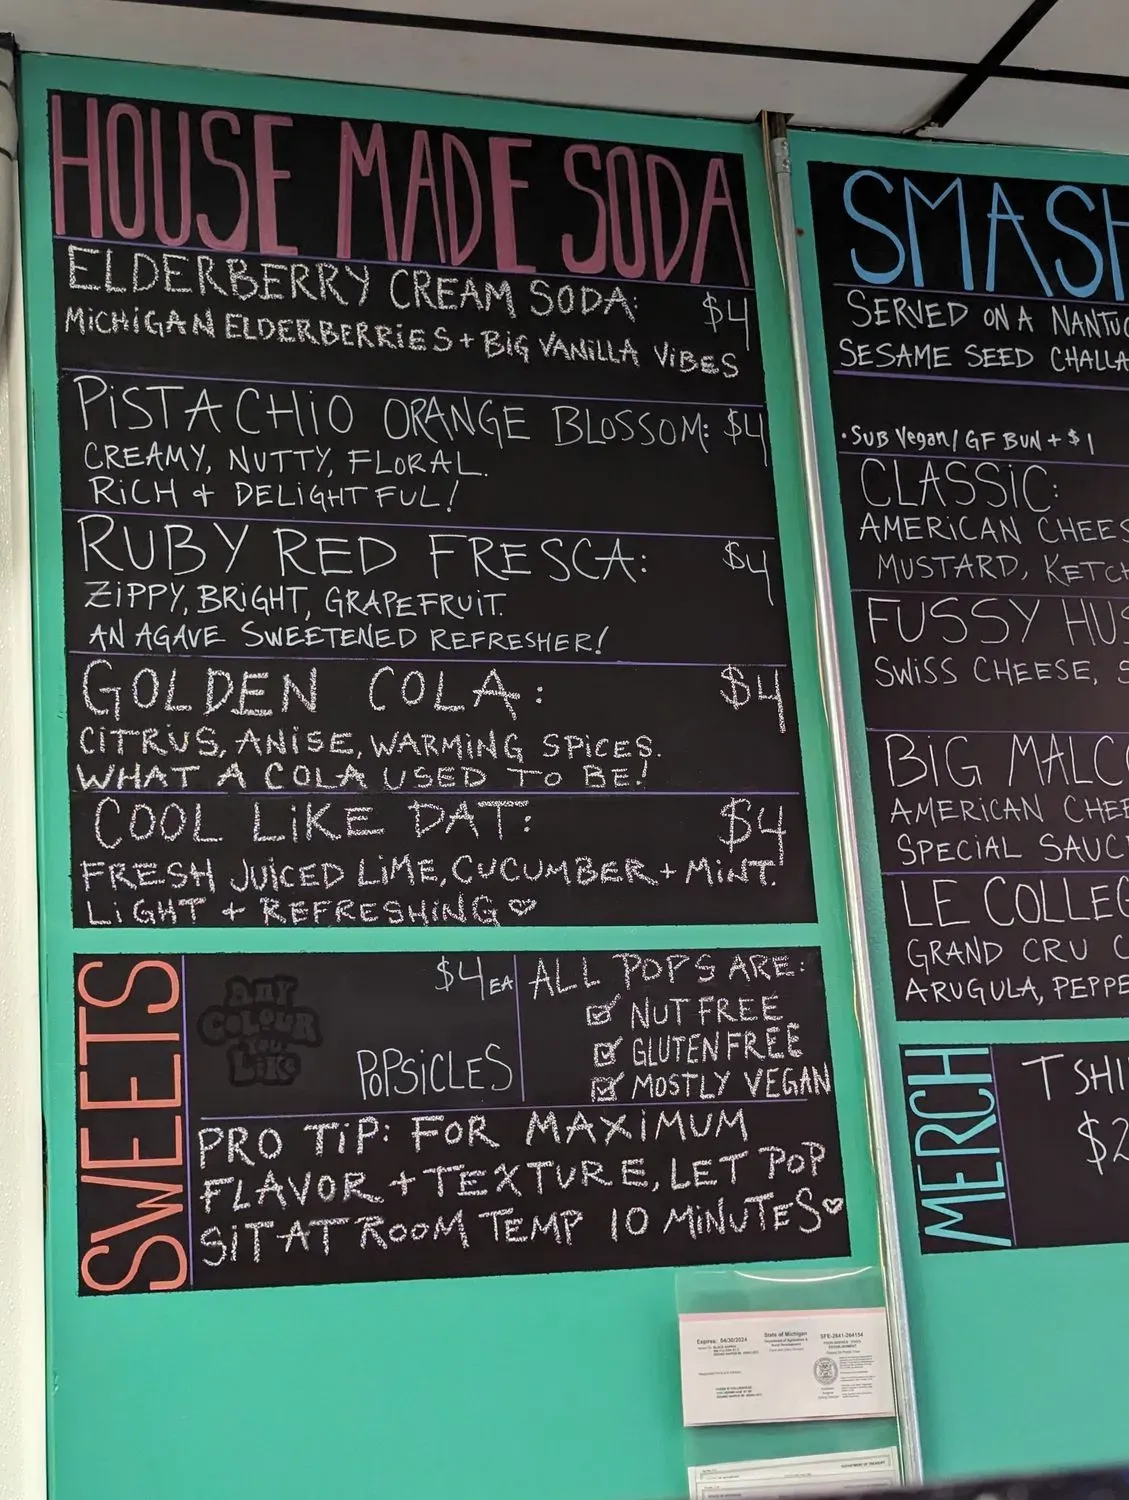 HOUSE MADE SODA
ELDERBERRY CREAM SODA: $4
MICHIGAN ELDERBERRIES + BIG VANILLA VIBES
PISTACHIO ORANGE BLOSSOM: $4
CREAMY, NUTTY, FLORAL.
RICH + DELIGHTFUL!
RUBY RED FRESCA: $4
ZIPPY, BRIGHT, GRAPEFRUIT.
AN AGAVE SWEETENED REFRESHER!
GOLDEN COLA: $4
CITRUS, ANISE, WARMING SPICES.
WHAT A COLA USED TO BE!
COOL LIKE DAT: $4
FRESH JUICED LIME, CUCUMBER + MINT.
LIGHT + REFRESHING ♡
SWEETS
ANY
COLOUR
YOU
LIKE
$4 EA
POPSICLES
ALL POPS ARE:
☑ NUT FREE
☑ GLUTEN FREE
☑ MOSTLY VEGAN
PRO TIP: FOR MAXIMUM
FLAVOR + TEXTURE, LET POP
SIT AT ROOM TEMP 10 MINUTES ♥
SMASH
SERVED ON A
SESAME SEED
• SUB Vegan/ GF BUN + $1
CLASSIC:
AMERICAN
MUSTARD,
FUSSY
SWISS CHEESE,
BIG
AMERICAN
SPECIAL
LE
GRAND CRU
ARUGULA,
MERCH
T
Expires: 04/30/2024
State of Michigan
SFE-2641-264154